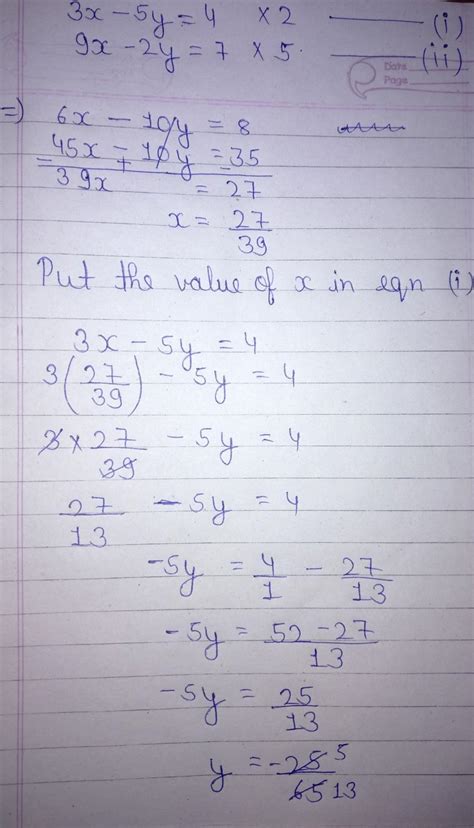 3x - 5y = 4 × 2 (i)
9x - 2y = 7 × 5 (ii)
Date
Page
=) 6x - 10y = 8
45x - 10y = 35
- + -
39x = 27
x = 27/39
Put the value of x in eqn (i)
3x - 5y = 4
3(27/39) - 5y = 4
3 × 27/39 - 5y = 4
27/13 - 5y = 4
-5y = 4/1 - 27/13
-5y = 52 - 27/13
-5y = 25/13
y = -25 5/65 13